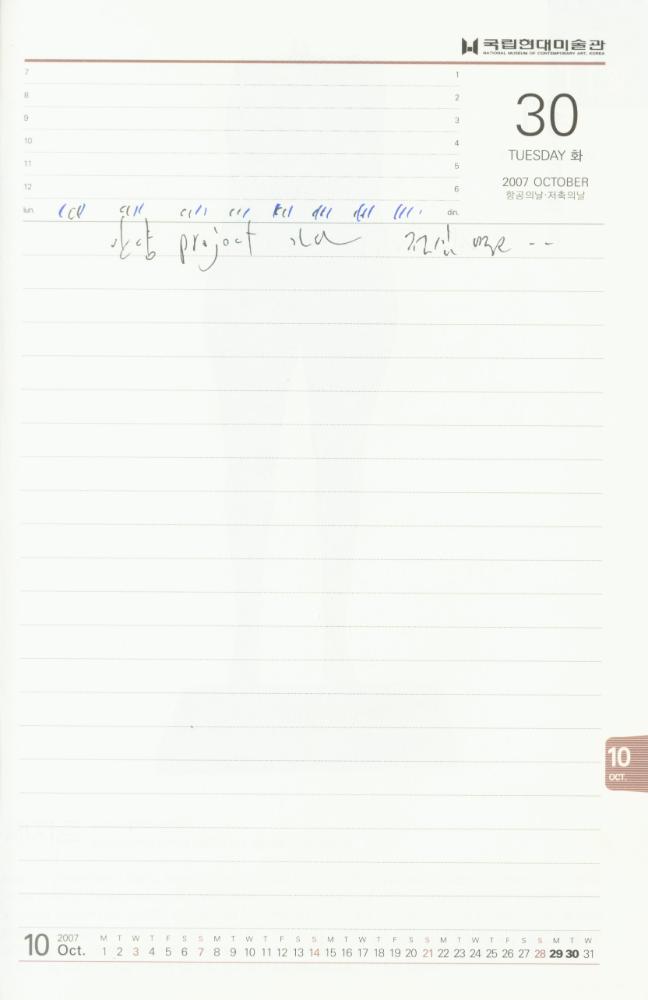 국립현대미술관
NATIONAL MUSEUM OF CONTEMPORARY ART, KOREA
7 1
8 2
9 3
10 4
11 5
12 6
lun. din.
30
TUESDAY 화
2007 OCTOBER
항공의날·저축의날
project
10
OCT.
10 2007 Oct.
M T W T F S S M T W T F S S M T W T F S S M T W T F S S M T W
1 2 3 4 5 6 7 8 9 10 11 12 13 14 15 16 17 18 19 20 21 22 23 24 25 26 27 28 29 30 31